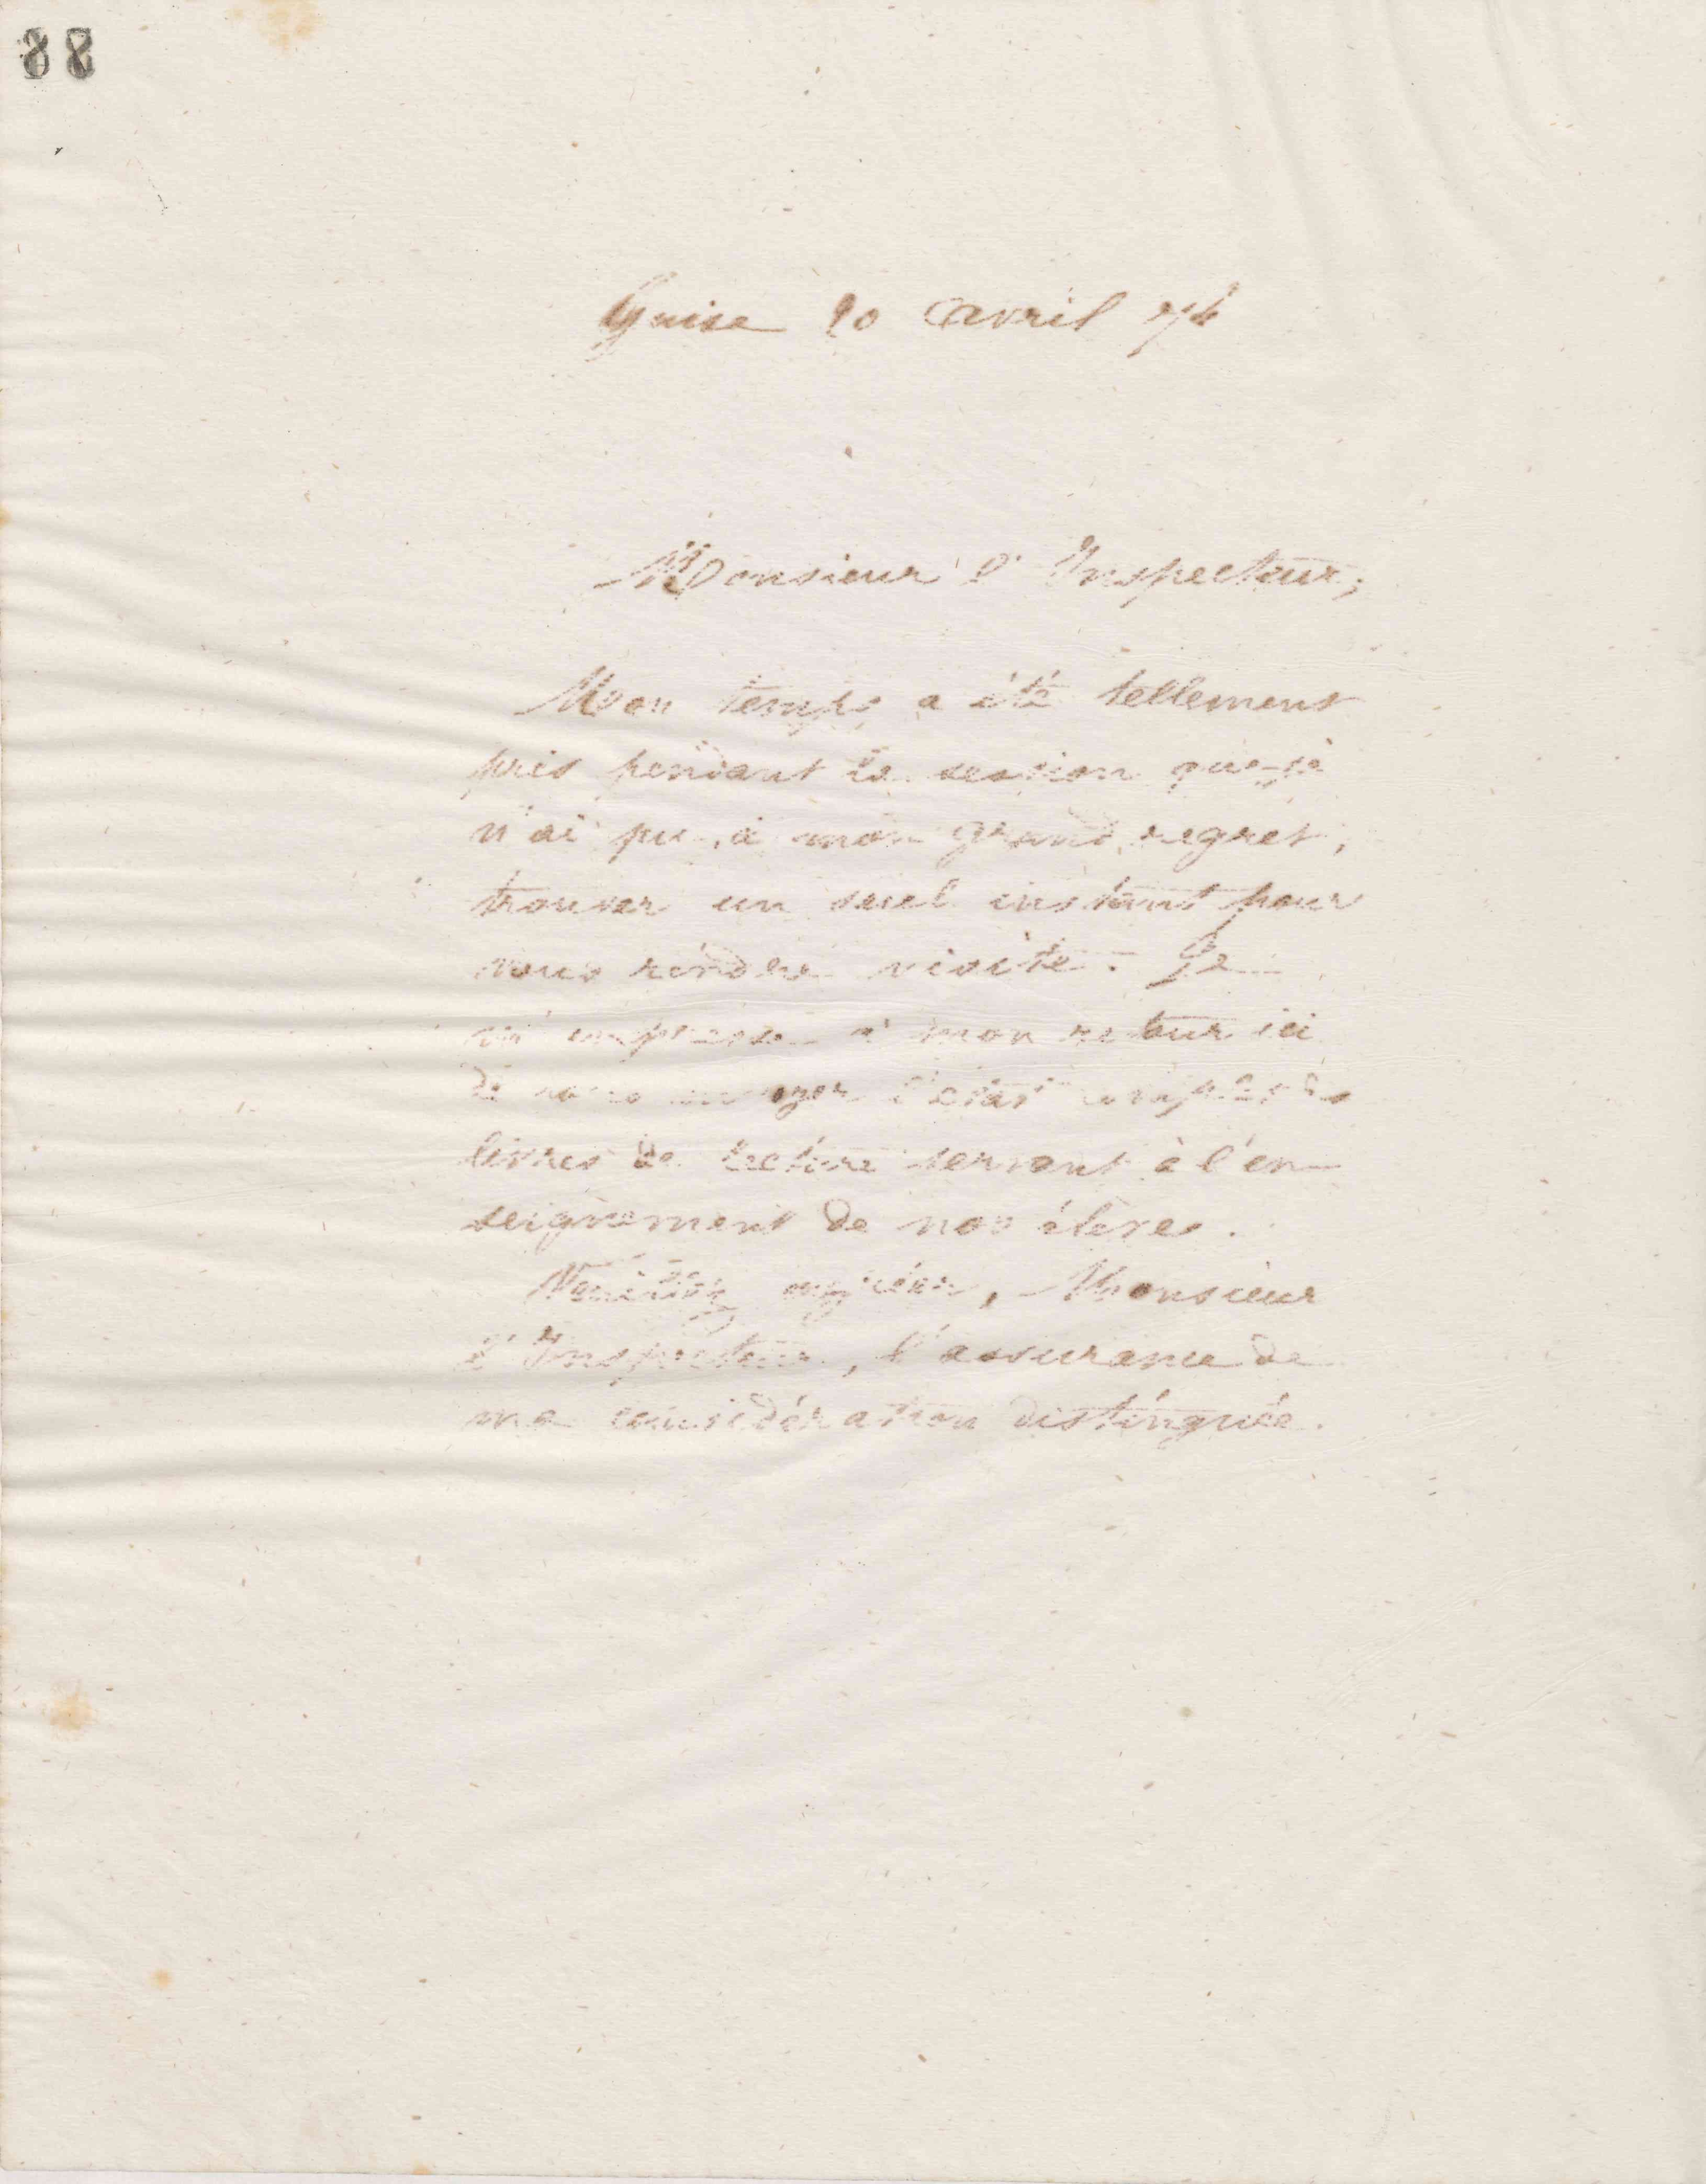 88
Guise 10 avril 74
Monsieur l'Inspecteur,
Mon temps a été tellement
pris pendant la session que je
n'ai pu, à mon grand regret,
trouver un seul instant pour
vous rendre visite. Je
m'empresse à mon retour ici
de vous envoyer l'état complet des
livres de lecture servant à l'en-
seignement de nos élèves.
Veuillez agréer, Monsieur
l'Inspecteur, l'assurance de
ma considération distinguée.